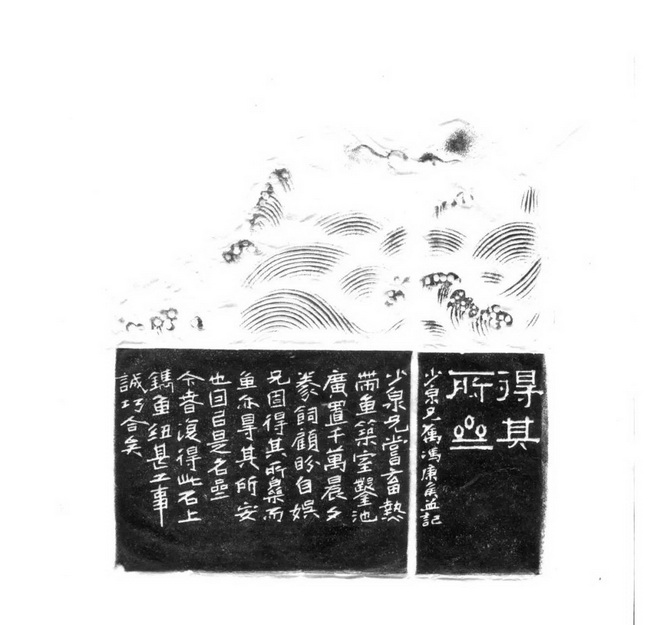 得其
所
少泉兄屬馮康侯並記
少泉兄嘗畜熱
帶魚築室鑿池
廣置千萬晨夕
豢飼顧盼自娛
兄固得其所樂而
魚亦得其所安
也因㠯是名壘
今春復得此石上
鐫魚紐甚工事
誠巧合矣